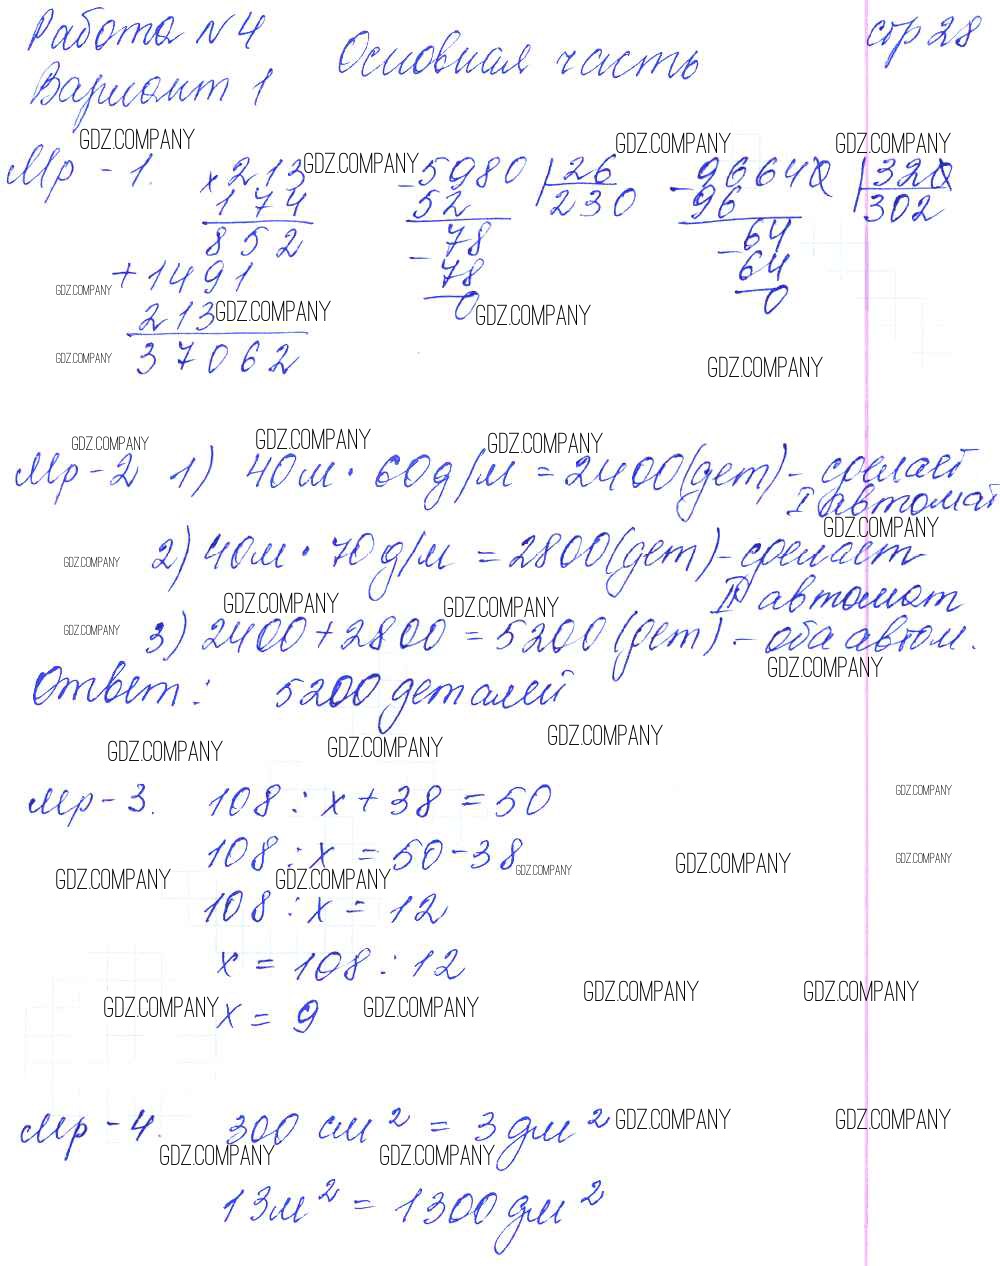 Работа №4
стр 28
Основная часть
Вариант 1
GDZ.COMPANY GDZ.COMPANY GDZ.COMPANY GDZ.COMPANY
Мр - 1. × 213 - 5980 | 26 - 96640 | 320
174 52 230 96 302
852 - 78 - 64
+ 1491 78 64
GDZ.COMPANY
213 0 0
GDZ.COMPANY GDZ.COMPANY
37062
GDZ.COMPANY GDZ.COMPANY
GDZ.COMPANY GDZ.COMPANY GDZ.COMPANY
Мр - 2 1) 40м · 60д/м = 2400 (дет) - сделает
I автомат
GDZ.COMPANY
2) 40м · 70д/м = 2800 (дет) - сделает
GDZ.COMPANY
II автомат
GDZ.COMPANY GDZ.COMPANY
3) 2400 + 2800 = 5200 (дет) - оба автом.
GDZ.COMPANY GDZ.COMPANY
Ответ: 5200 деталей
GDZ.COMPANY GDZ.COMPANY GDZ.COMPANY
Мр - 3. 108 : x + 38 = 50
GDZ.COMPANY
108 : x = 50 - 38
GDZ.COMPANY GDZ.COMPANY GDZ.COMPANY GDZ.COMPANY GDZ.COMPANY
108 : x = 12
x = 108 : 12
GDZ.COMPANY GDZ.COMPANY GDZ.COMPANY GDZ.COMPANY
x = 9
Мр - 4. 300 см² = 3 дм²
GDZ.COMPANY GDZ.COMPANY
GDZ.COMPANY GDZ.COMPANY
13м² = 1300 дм²